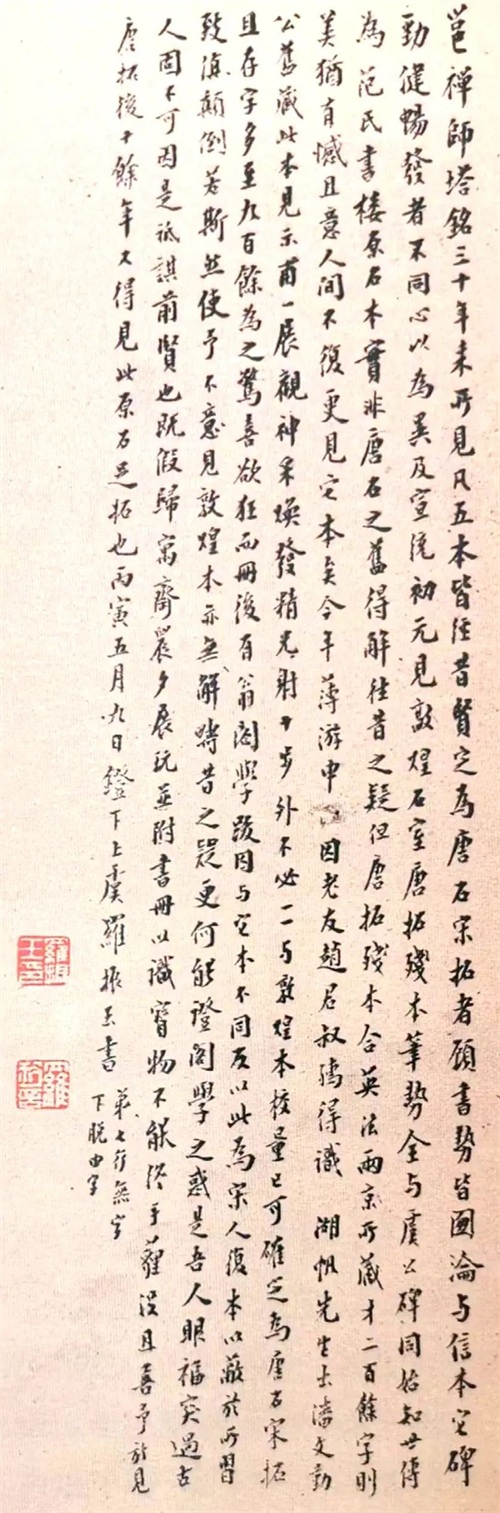 邕禪師塔銘三十年来所見凡五本皆經昔賢定為唐石宋拓者顧書勢皆圓淪與信本它碑
勁健暢發者不同心以為異及宣統初元見敦煌石室唐拓殘本筆勢全與虞公碑同始知世傳
為范氏書樓原石本實非唐石之舊得解往昔之疑但唐拓殘本合英法兩京所藏才二百餘字則
美猶有憾且意人間不復更見它本矣今年薄游申因老友趙君叔孺得識 湖帆先生出潘文勤
公舊藏此本見示甫一展觀神采煥發精光射十步外不必一一與敦煌本校量已可確定為唐石宋拓
且存字多至九百餘為之驚喜欲狂而冊後有翁閣學跋因與它本不同反以此為宋人復本以蔽於所習
致顛倒若斯然使予不意見敦煌本亦無解疇昔之疑更何能證閣學之惑是吾人眼福突過古
人固不可因是祗諆前賢也既假歸寓齋晨夕展玩並附書冊以識寶物不能終于薶沒且喜予於見
唐拓後十餘年又得見此原石足拓也丙寅五月九日鐙下上虞羅振玉書
第七行無字
下脫由字
羅振玉印